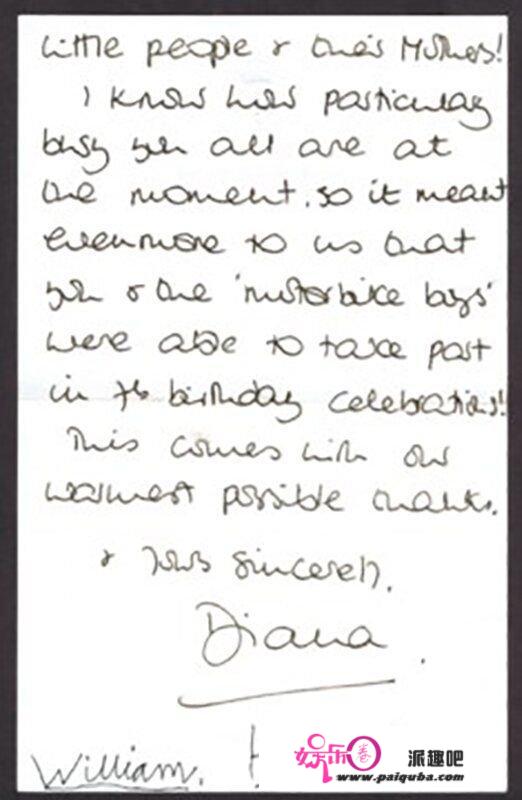 little people & their Mothers!
I know how particularly
busy you all are at
the moment, so it meant
even more to us that
you & the 'motorbike boys'
were able to take part
in 7th birthday celebrations!!
This comes with our
warmest possible thanks.
& Yours Sincerely,
Diana.
William. !
娱乐圈 派趣吧
www.paiquba.com